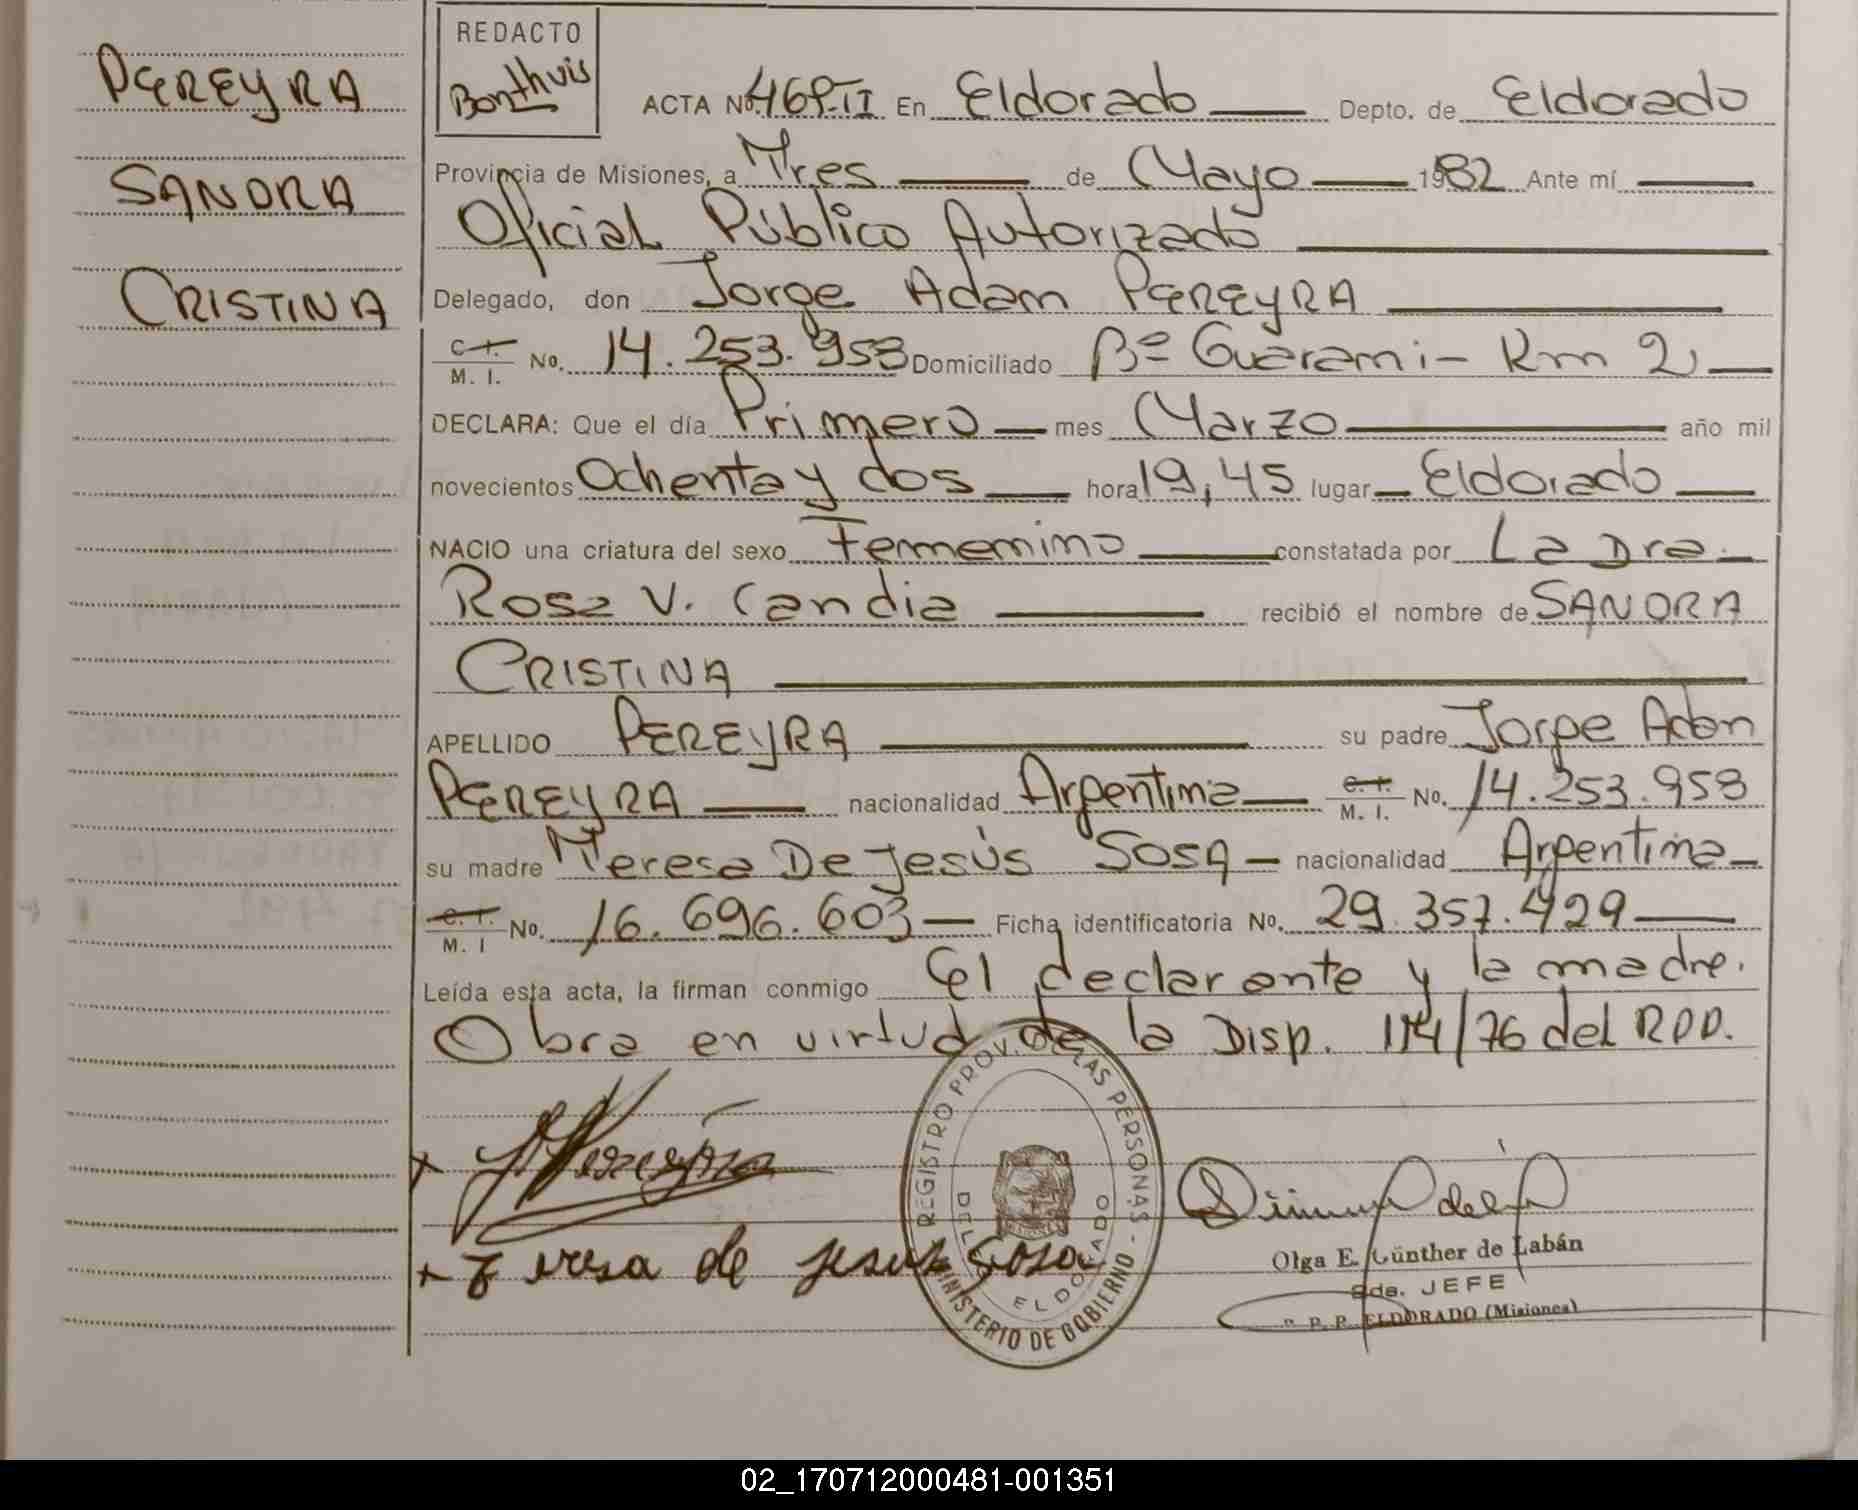 PEREYRA
SANDRA
CRISTINA
REDACTO
Bonthuis
ACTA No. 469-II En Eldorado Depto. de Eldorado
Provincia de Misiones, a Tres de Mayo 1982 Ante mí
Oficial Público Autorizado
Delegado, don Jorge Adam PEREYRA
C. I. M. I. No. 14.253.953 Domiciliado Bº Guarani - Km 2
DECLARA: Que el día Primero mes Marzo año mil
novecientos Ochenta y dos hora 19,45 lugar Eldorado
NACIO una criatura del sexo Femenino constatada por La Dra.
Rosa V. Candia recibió el nombre de SANDRA
CRISTINA
APELLIDO PEREYRA su padre Jorge Adan
PEREYRA nacionalidad Argentina C. I. M. I. No. 14.253.953
su madre Teresa De Jesús SOSA nacionalidad Argentina
C. I. M. I No. 16.696.603 Ficha identificatoria No. 29.357.429
Leída esta acta, la firman conmigo El declarante y la madre.
Obra en virtud de la Disp. 114/76 del RPP.
REGISTRO PROV. DE LAS PERSONAS - MINISTERIO DE GOBIERNO
ELDORADO
x Teresa de Jesus Sosa
Olga E. Günther de Labán
2da. JEFE
R. P. P. ELDORADO (Misiones)
02_170712000481-001351